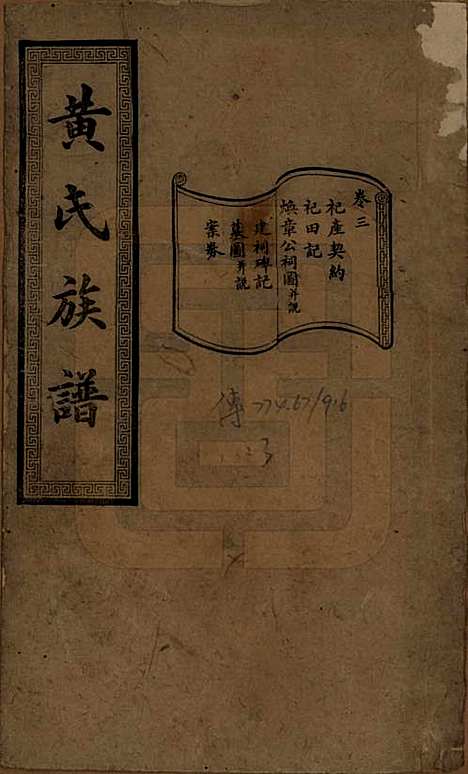 黃氏族譜
卷三
祀產契約
祀田記
煥章公祠圖并說
建祠碑記
墓圖并說
案券
傳774.67/916